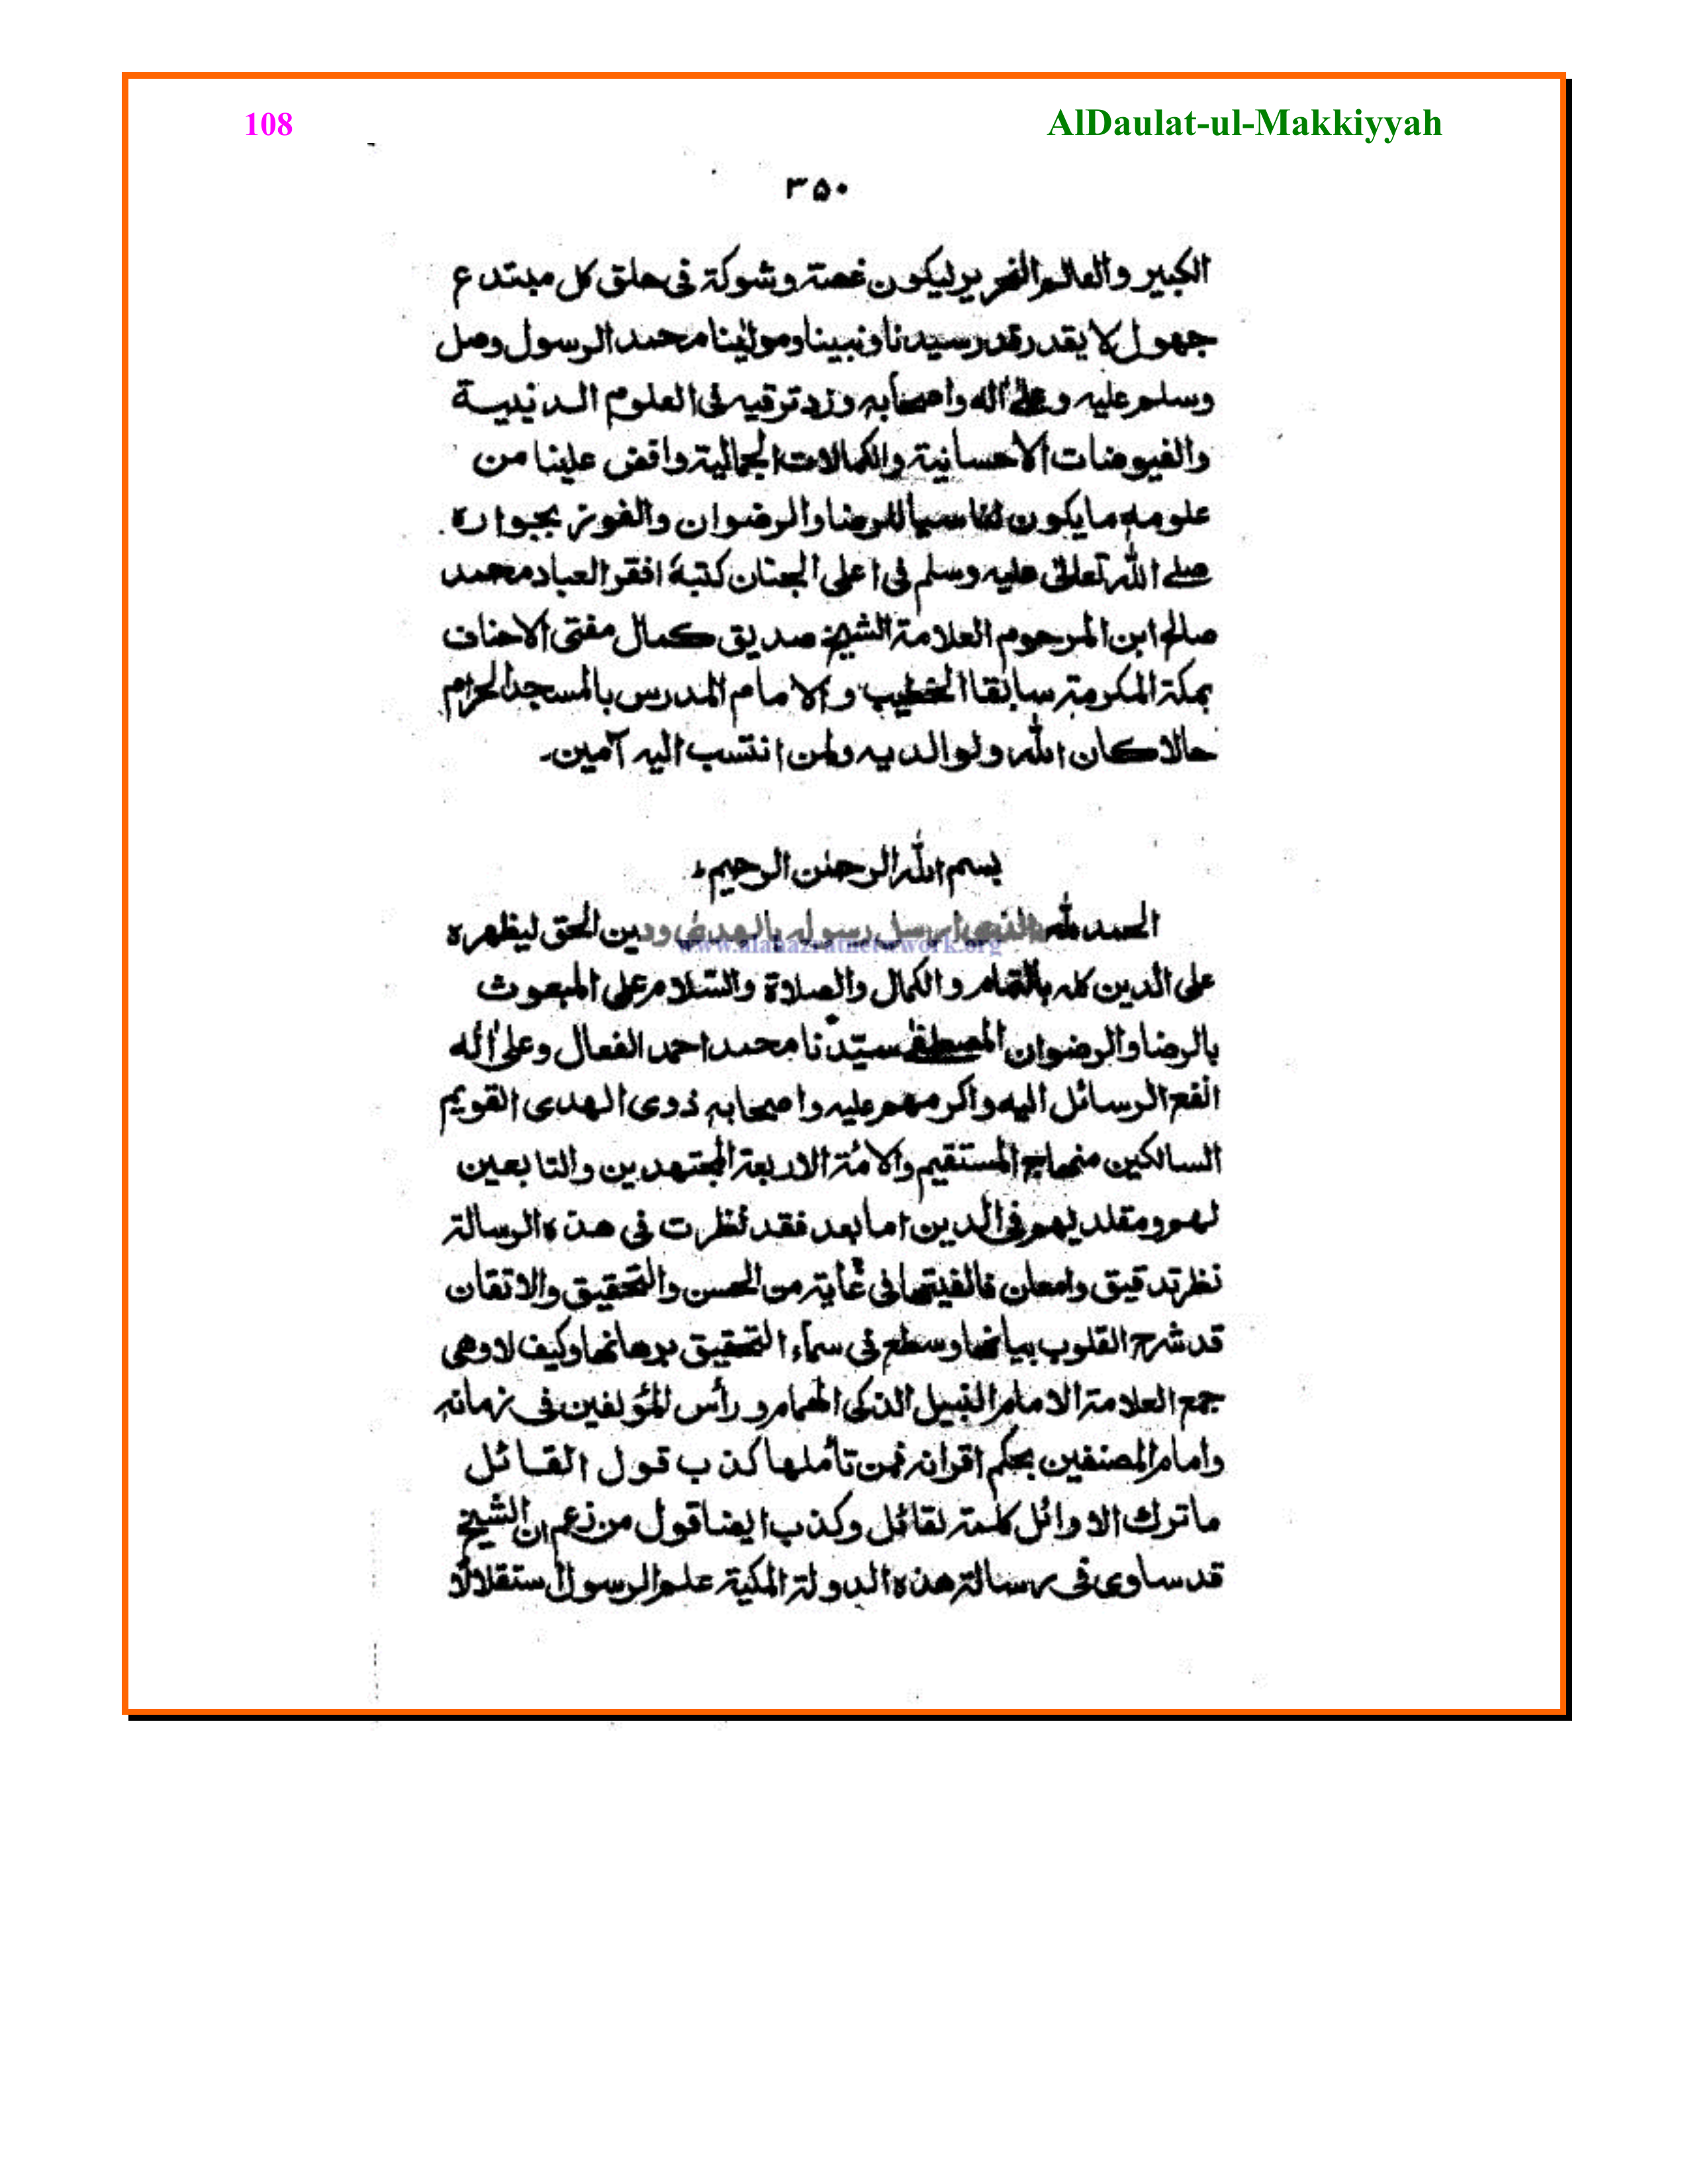 108 AlDaulat-ul-Makkiyyah
۳۵۰
الکبیر والعالم النحریر لیکون غصة وشوکة فی حلق کل مبتدع
جهول لا یقدر قدر سیدنا ونبینا ومولینا محمد الرسول وصل
وسلم علیه وعلیٰ اٰله واصحابه وزد ترقیه فی العلوم الدینیة
والفیوضات الاحسانیة والکمالات الجمالیة وافض علینا من
علومه ما یکون لنا سببا للرضا والرضوان والفوز بجواره
صلے الله تعالیٰ علیه وسلم فی اعلی الجنان کتبهٗ افقر العباد محمد
صالح ابن المرحوم العلامة الشیخ صدیق کمال مفتی الاحناف
بمکة المکرمة سابقا الخطیب والامام المدرس بالمسجد الحرام
حالا کان الله ولوالدیه ولمن انتسب الیه آمین۔
بسم الله الرحمٰن الرحیم ؕ
الحمد لله الذی ارسل رسوله بالهدی ودین الحق لیظهره
www.alahazratnetwork.org
علی الدین کله بالتمام والکمال والصلاة والسّلام علی المبعوث
بالرضا والرضوان المصطفیٰ سیّدنا محمد احمد الفعال وعلیٰ اٰله
انفع الرسائل الیه واکرمهم علیه واصحابه ذوی الهدی القویم
السالکین منهاج المستقیم والائمة الاربعة المجتهدین والتابعین
لهم ومقلدیهم فی الدین اما بعد فقد نظرت فی هذه الرسالة
نظر تدقیق وامعان فالفیتها فی غایة من الحسن والتحقیق والاتقان
قد شرح القلوب بیانها وسطع فی سمآء التحقیق برهانها وکیف لا وهی
جمع العلامة الامام النبیل الذکی الهمام ورأس المؤلفین فی زمانه
وامام المصنفین بحکم اقرانه فمن تأملها کذب قول القائل
ما ترک الاوائل کلمة لقائل وکذب ایضا قول من زعم ان الشیخ
قد ساوی فی رسالة هذه الدولة المکیة علم الرسول استقلالاً